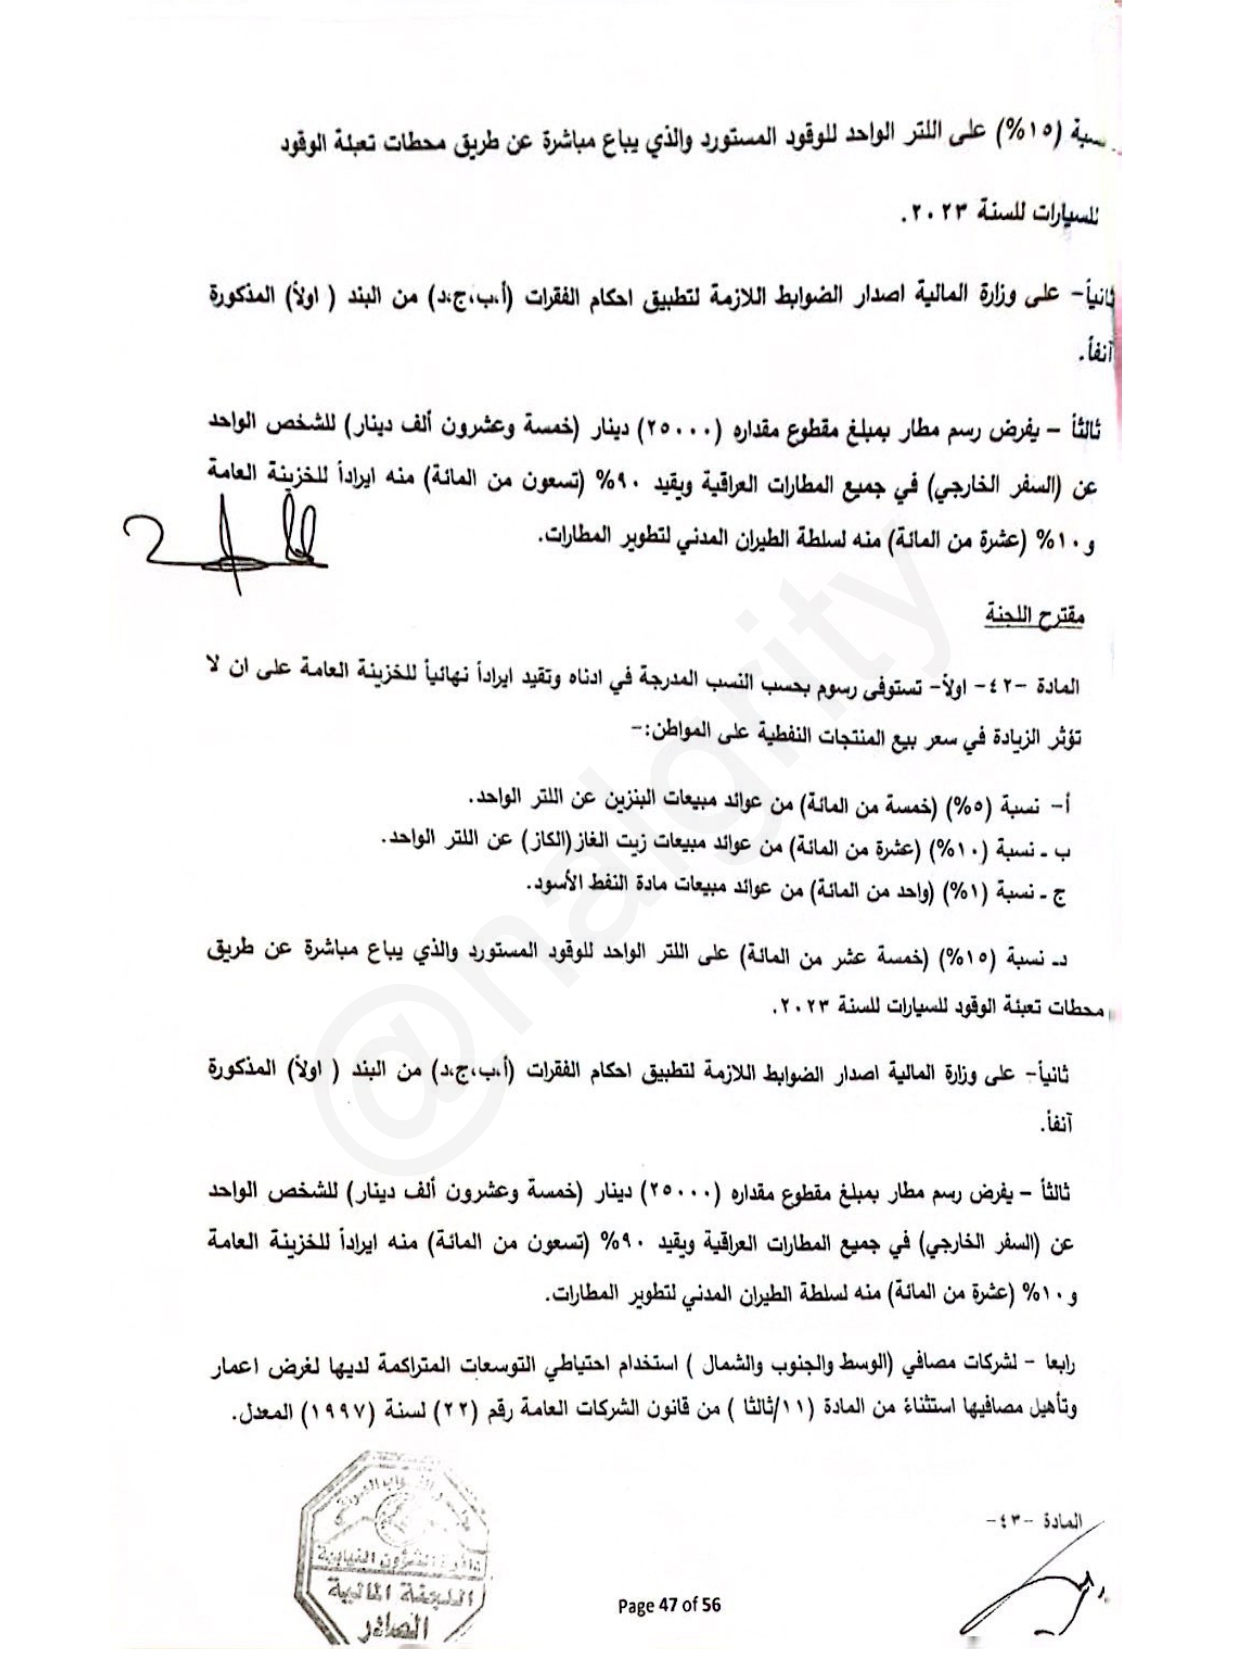 نسبة (١٥%) على اللتر الواحد للوقود المستورد والذي يباع مباشرة عن طريق محطات تعبئة الوقود
للسيارات للسنة ٢٠٢٣.
ثانياً- على وزارة المالية اصدار الضوابط اللازمة لتطبيق احكام الفقرات (أ،ب،ج،د) من البند ( اولاً) المذكورة
آنفاً.
ثالثاً – يفرض رسم مطار بمبلغ مقطوع مقداره (٢٥٠٠٠) دينار (خمسة وعشرون ألف دينار) للشخص الواحد
عن (السفر الخارجي) في جميع المطارات العراقية ويقيد ٩٠% (تسعون من المائة) منه ايراداً للخزينة العامة
و١٠% (عشرة من المائة) منه لسلطة الطيران المدني لتطوير المطارات.
مقترح اللجنة
المادة -٤٢- اولاً- تستوفى رسوم بحسب النسب المدرجة في ادناه وتقيد ايراداً نهائياً للخزينة العامة على ان لا
تؤثر الزيادة في سعر بيع المنتجات النفطية على المواطن:-
أ- نسبة (٥%) (خمسة من المائة) من عوائد مبيعات البنزين عن اللتر الواحد.
ب ـ نسبة (١٠%) (عشرة من المائة) من عوائد مبيعات زيت الغاز(الكاز) عن اللتر الواحد.
ج ـ نسبة (١%) (واحد من المائة) من عوائد مبيعات مادة النفط الأسود.
دـ نسبة (١٥%) (خمسة عشر من المائة) على اللتر الواحد للوقود المستورد والذي يباع مباشرة عن طريق
محطات تعبئة الوقود للسيارات للسنة ٢٠٢٣.
ثانياً- على وزارة المالية اصدار الضوابط اللازمة لتطبيق احكام الفقرات (أ،ب،ج،د) من البند ( اولاً) المذكورة
آنفاً.
ثالثاً – يفرض رسم مطار بمبلغ مقطوع مقداره (٢٥٠٠٠) دينار (خمسة وعشرون ألف دينار) للشخص الواحد
عن (السفر الخارجي) في جميع المطارات العراقية ويقيد ٩٠% (تسعون من المائة) منه ايراداً للخزينة العامة
و١٠% (عشرة من المائة) منه لسلطة الطيران المدني لتطوير المطارات.
رابعا - لشركات مصافي (الوسط والجنوب والشمال ) استخدام احتياطي التوسعات المتراكمة لديها لغرض اعمار
وتأهيل مصافيها استثناءً من المادة (١١/ثالثا ) من قانون الشركات العامة رقم (٢٢) لسنة (١٩٩٧) المعدل.
المادة -٤٣-
دائرة الشؤون النيابية
اللجنة المالية
الصادر
Page 47 of 56
@nalgrity